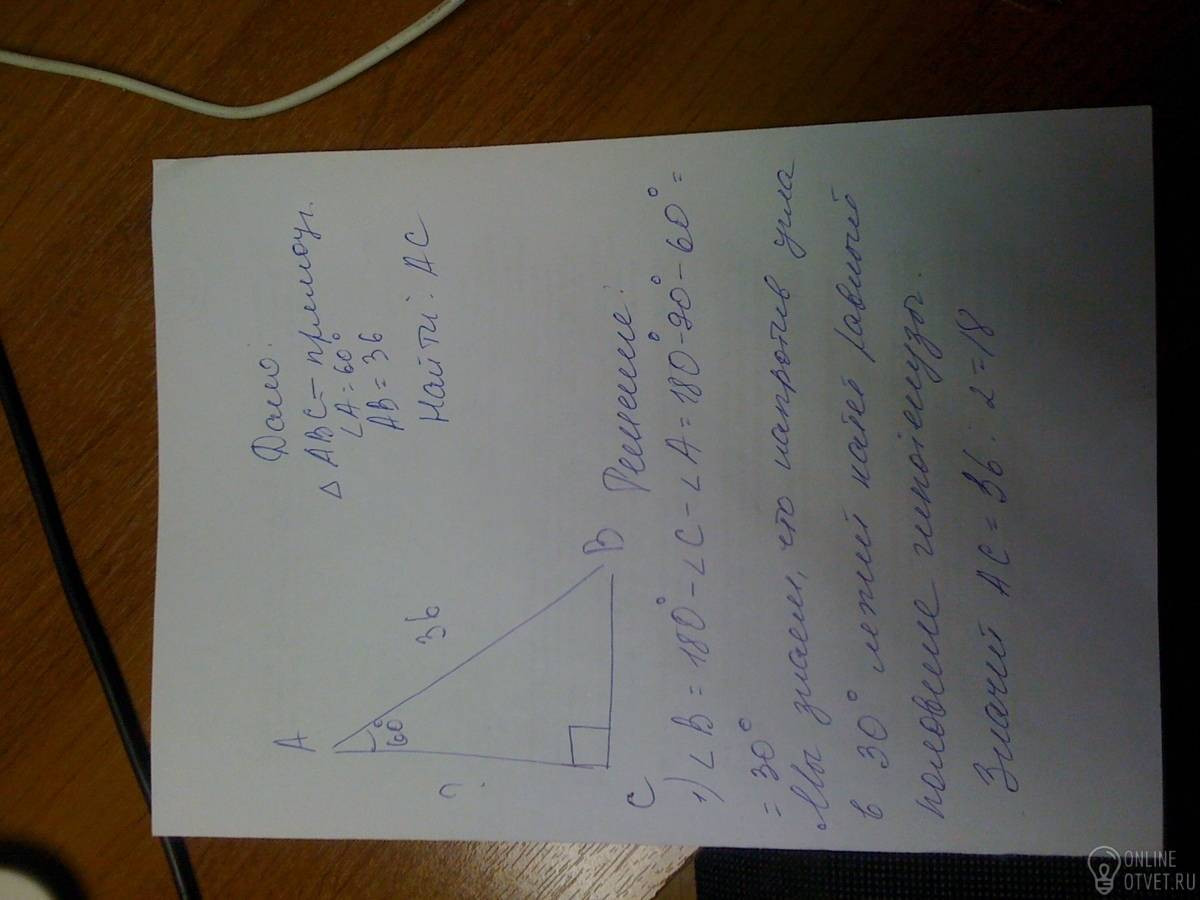 Дано:
△ ABC – прямоуг.
∠A = 60°
AB = 36
Найти: AC
A
60°
36
?
C
B
Решение:
1) ∠B = 180° – ∠C – ∠A = 180° – 90° – 60° =
= 30°
Мы знаем, что напротив угла
в 30° лежит катет равный
половине гипотенузы.
Значит AC = 36 : 2 = 18
ONLINE
OTVET.RU